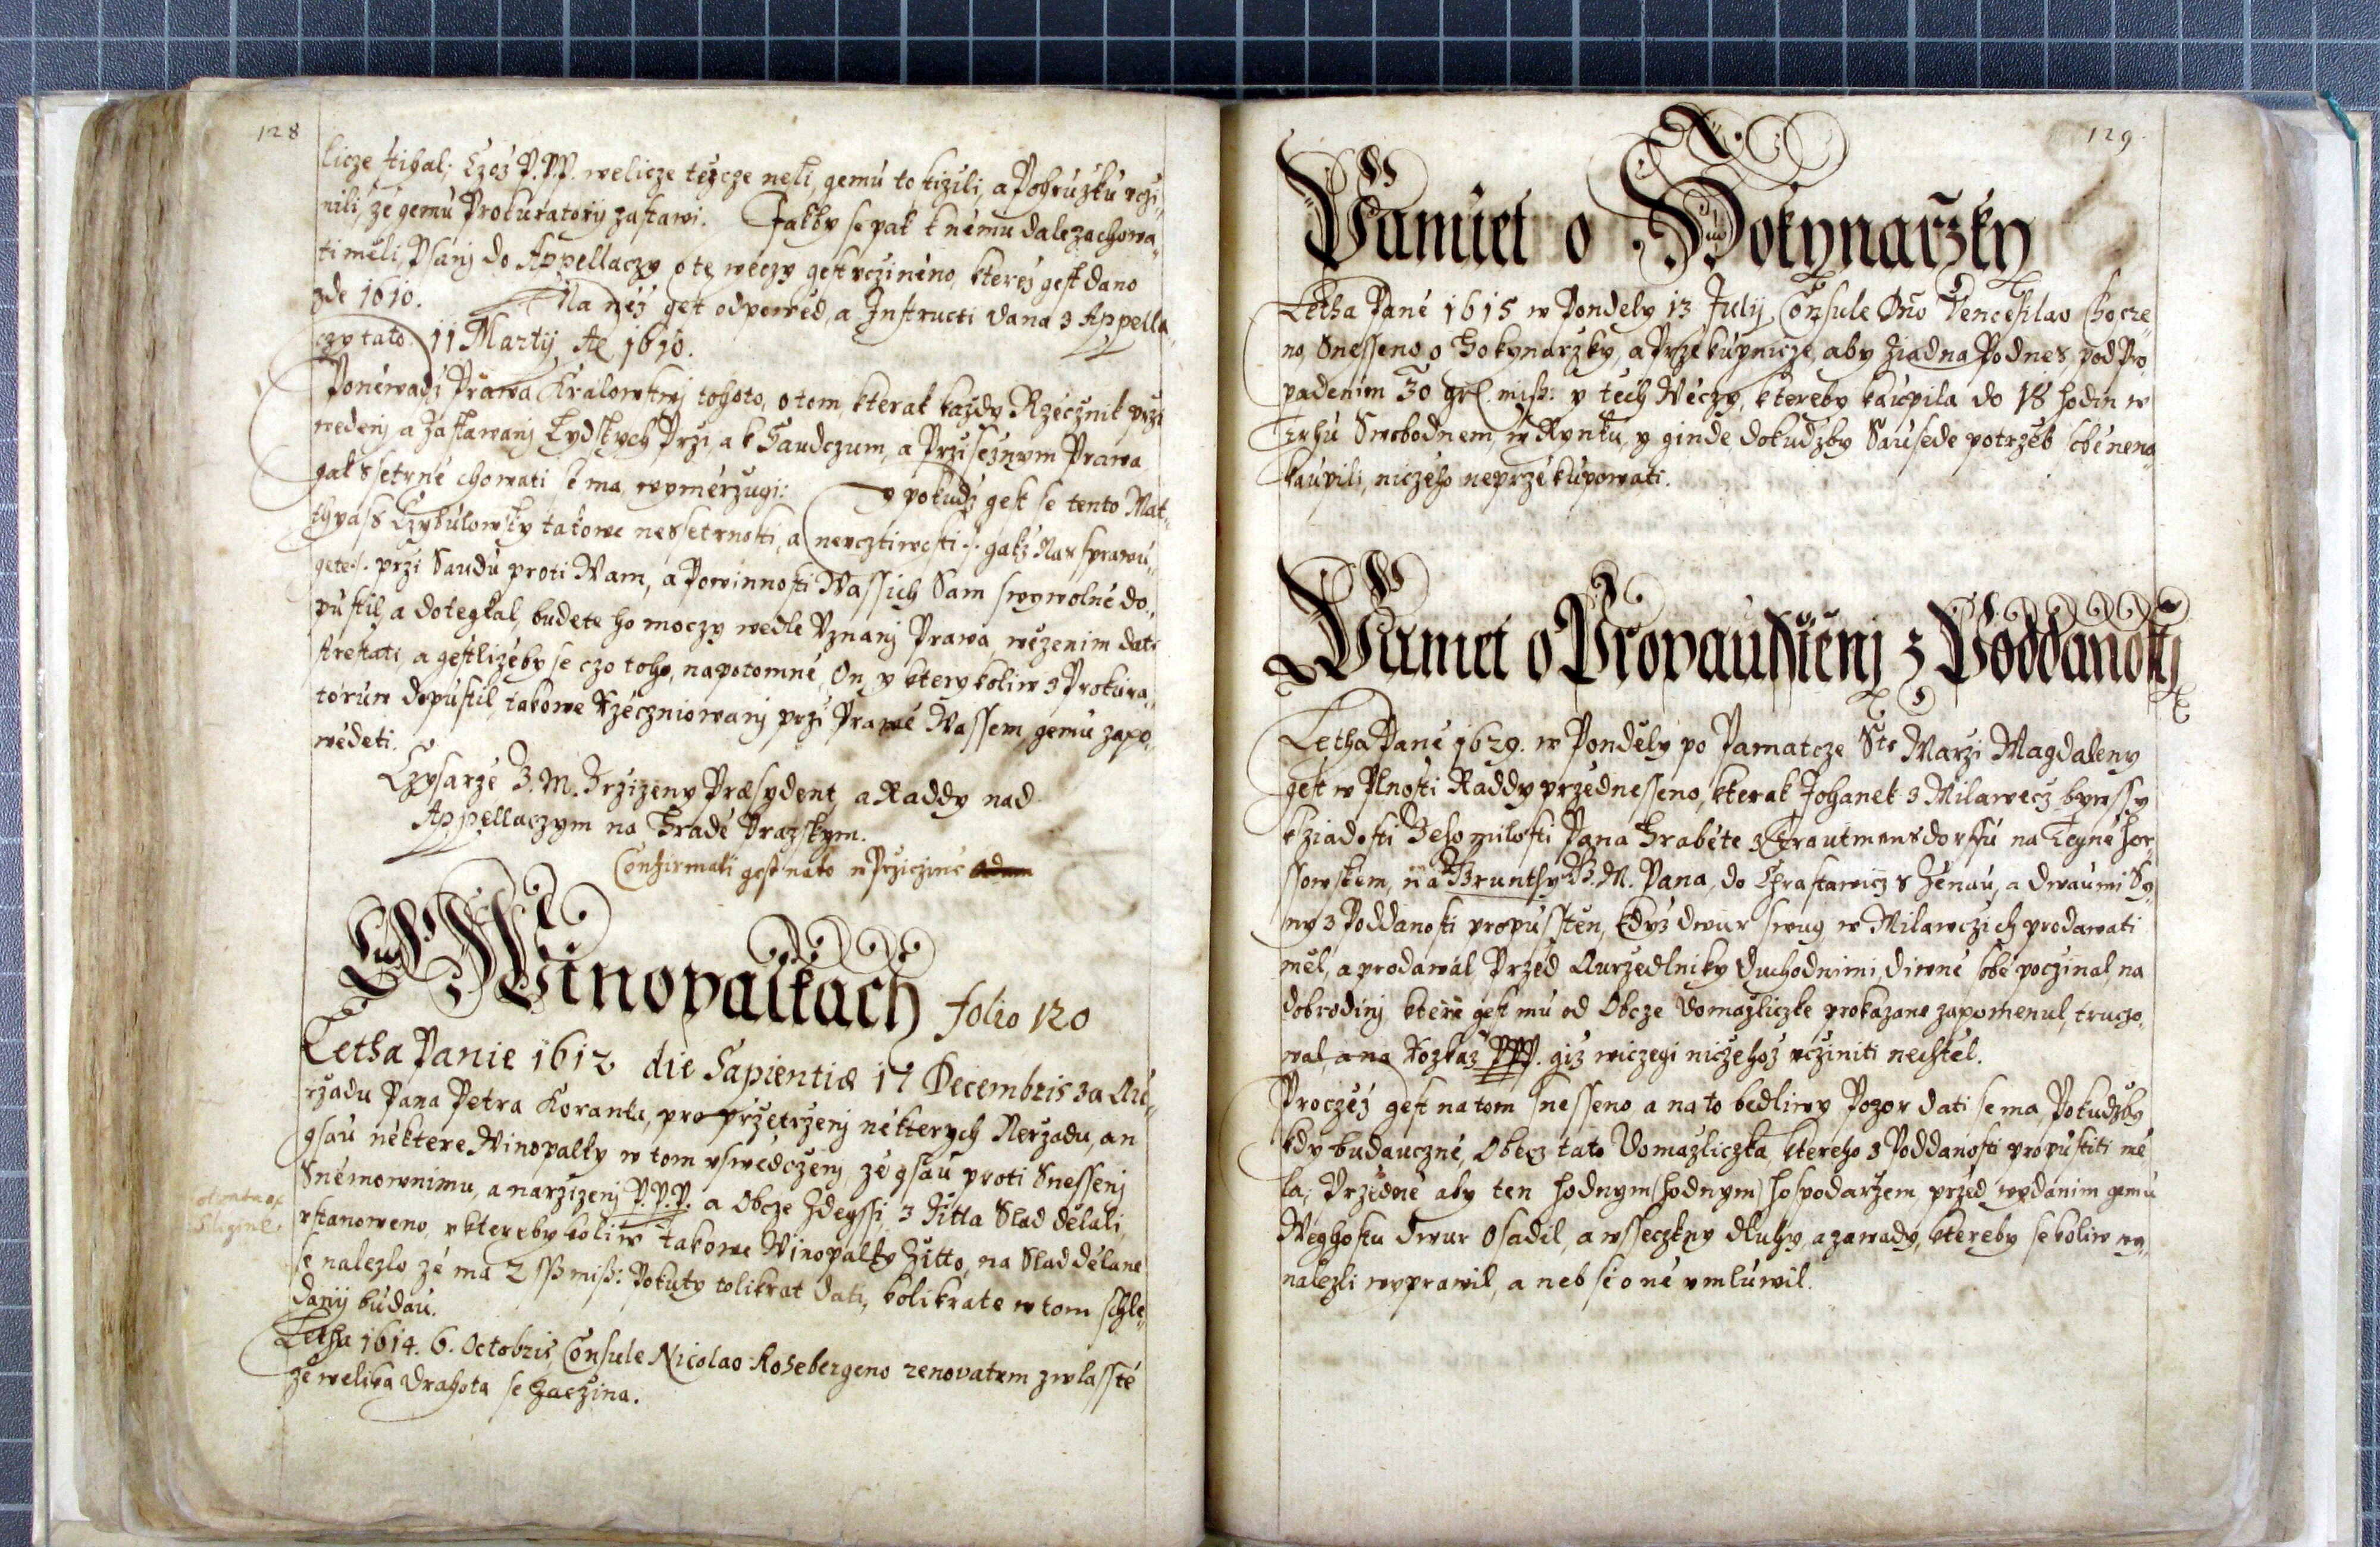 128
licze stihal; Czož P.P.P. welicze težcze nesli, gemu to stižili, a Pohružku vczi„
nili, že gemu Prokuratorij zastawi. Jakby se pak k němu dale zachowa„
ti měli, Psanj do Appellaczy o te weczy gest vczineno, kterež gest dano
zde 1610. Na něž gest odpowěd, a Instructi dana z Appella„
czy tato. 11 Martij Ae 1610.
Poněwadž Prawa Kralowstwj tohoto, o tom, kterak každy Rzecznik przi
wedenj a Zastawanj Lydskych Przi, a k Saudczum, a Przisežnym Prawa
gak ssetrně chowati se ma, wyměrzugi: y pokudž gest se tento Mat„
thyass Czybulowsky takowe nessetrnosti, a nevcztiwosti ·/· gakž Nas sprawu„
gete ·/· przi Saudu proti Wam, a Powinnosti Wassich Sam swywolně do„
pustil, a dotegkal, budete ho moczy wedle Vznanj Prawa, wězenim dati
strestati, a gestližeby se czo toho, napotomně, On, y kterykoliw z Prokura„
toruw dopustil, takowe Rzeczniowanj przi Prawě Wassem, gemu zapo„
wědeti.
Czysarže J. M. Zrzizeny Præsydent, a Raddy nad
Appellaczym na Hradě Pražskym.
Confirmati gest nato w Przicžině
O Winopalkach folio 120
Letha Panie 1612 die Sapientiæ 17 Decembris za Au„
rzadu Pana Petra Koranta, pro przetrženj některvch Nerzadu, an
gsau některe Winopalky w tom vswědczenj, že gsau proti Snessenj
Sněmownimu, a narzizenj P.P.P. a Obcze Zdegssi, z Žitta Slad dělali,
vstanoweno, v ktereby koliw takowe Winopalky Žitto, na Slad dělane
se nalezlo že ma 2 ssß miß: Pokuty tolikrat dati, kolikrate w tom schle„
danij budau.
Letha 1614. 6. Octobris, Consule Nicolao Rosebergeno renovatum zwlasstě
že welika Drahota se Zaczina.
129.
Pamiet o Hokynaržky
Letha Paně 1615 w Pondely 13 Julij, Consule Dno Venceslao Chocze„
no, Snesseno o Hokynarzky, a Przekupnicze, aby žiadna Podnes, pod Pro„
padenim 30 grl. miß: y těch Wěczy, ktereby kaupila do 18 hodin w
Trhu Swobodnem, w Rynku, y ginde, dokudžby Sausede potrzeb sobě nena„
kaupili, niczeho neprzekupowati.
Pamiet o Propausstienj z Poddanosti
Letha Paně 1629. w Pondely po Pamatcze Ste Marži Magdaleny
gest w Plnosti Raddy przednesseno, kterak Johanek z Milawecz bywssy
k žiadosti Jeho milosti Pana Hraběte z Trautmensdorffu na Teyně Hor
ssowskem, na Grunthy J. M. Pana, do Chrastawicz s Ženau, a dwaumi Sy„
ny z Poddanosti propusstěn, když dwur swug, w Milawczich prodawati
měl, a prodawal, Przed Aurzedlniky Duchodnimi, diwně sobě poczinal, na
dobrodinj, ktere gest mu od Obcze Domažliczke prokazane zapomenul, truczo„
wal, ana Rozkaz PPP. giž wiczegi niczehož vcziniti nechtěl.
Proczež gest na tom snesseno, a na to bedliwy Pozor dati se ma, Pokudžby
kdy budauczně, Obecz tato Domažliczka, ktereho z Poddanosti propustiti mě
la; Przedně aby ten hodnym (hodnym) hospodaržem, przed wydanim gemu
Weghostu dwur Osadil, a wsseczkny dluhy, a zawady, ktereby se koliw wy„
nalezli wyprawil, a neb se o ně vmluwil.